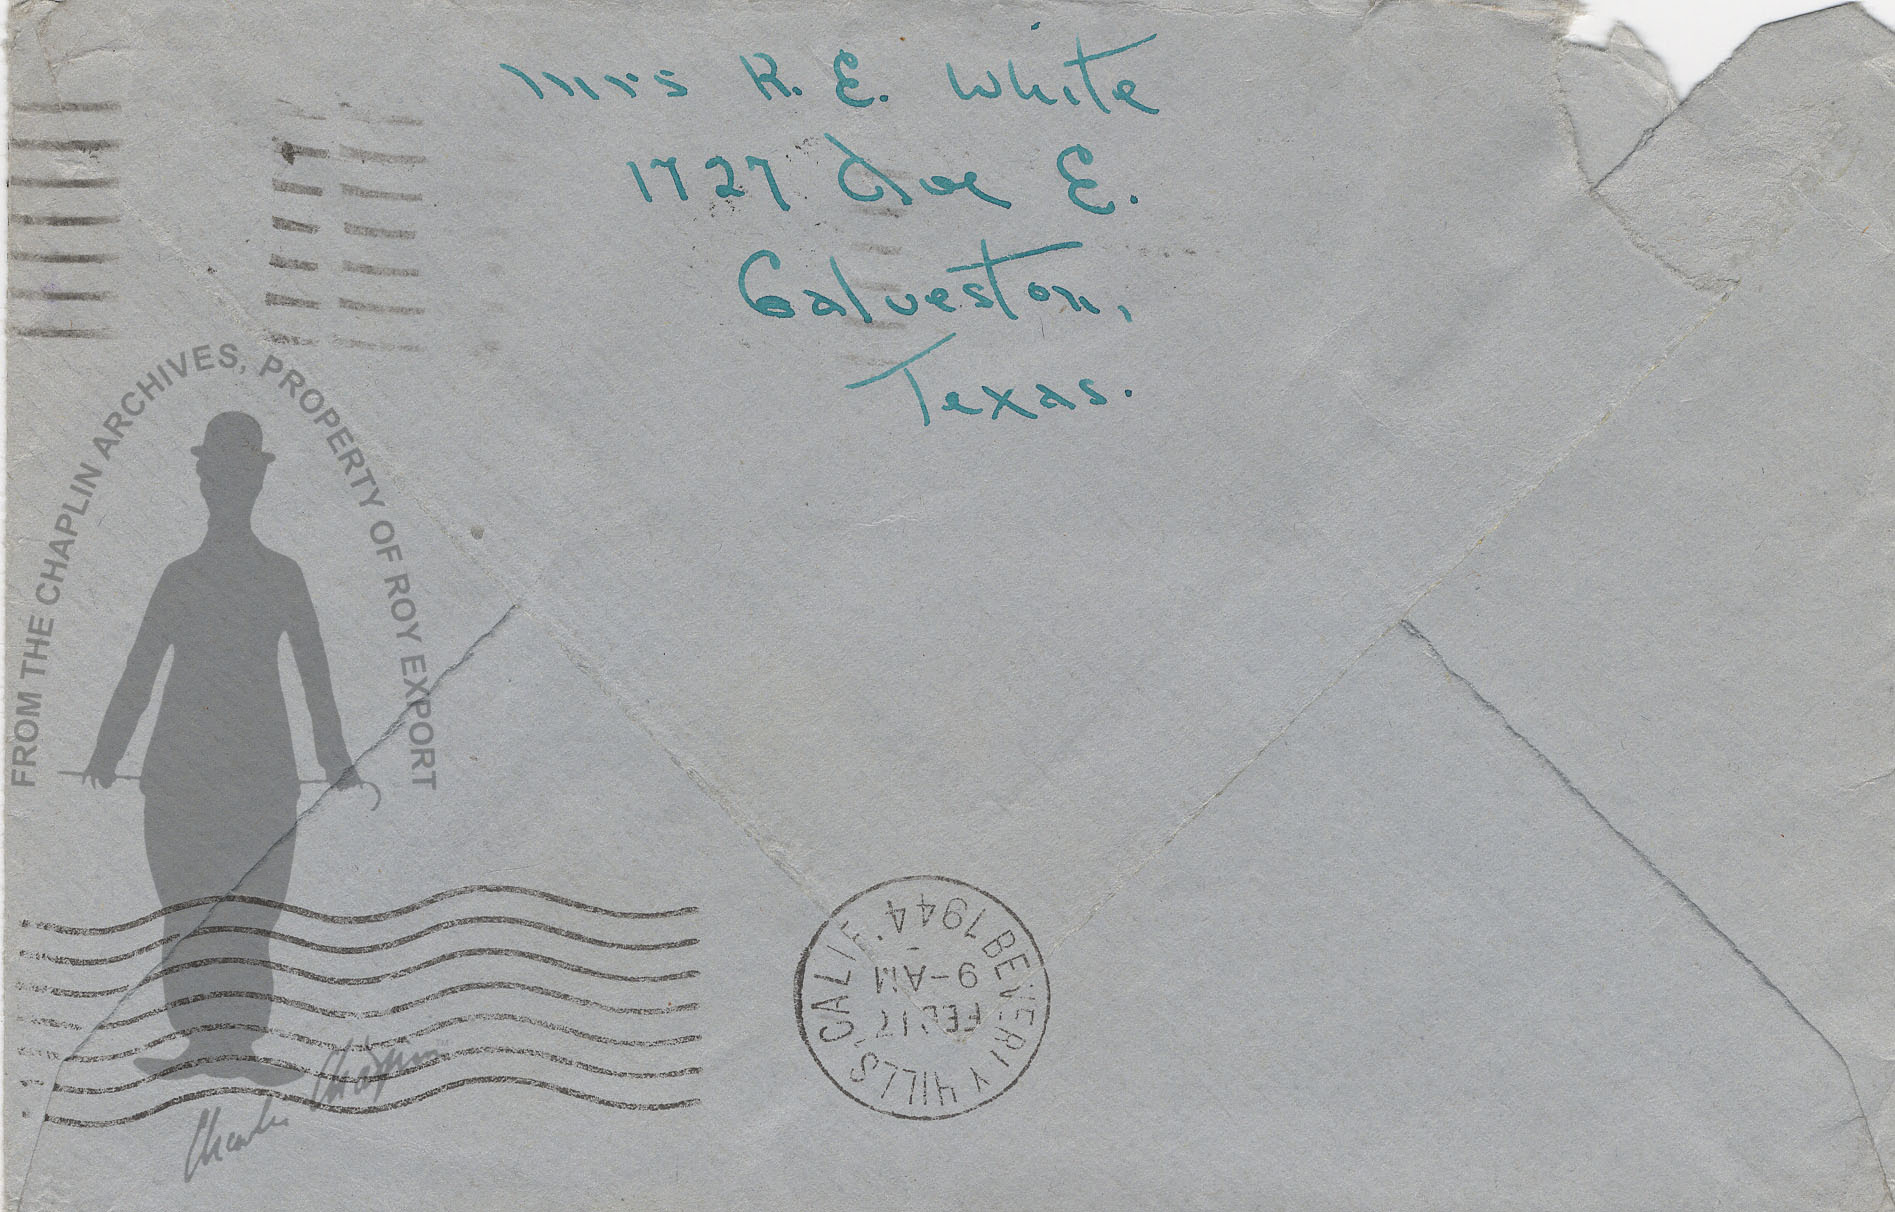 Mrs R. E. White
1727 Ave E.
Galveston,
Texas.
FROM THE CHAPLIN ARCHIVES, PROPERTY OF ROY EXPORT
Charlie Chaplin
BEVERLY HILLS, CALIF.
FEB 17
9-AM
1944